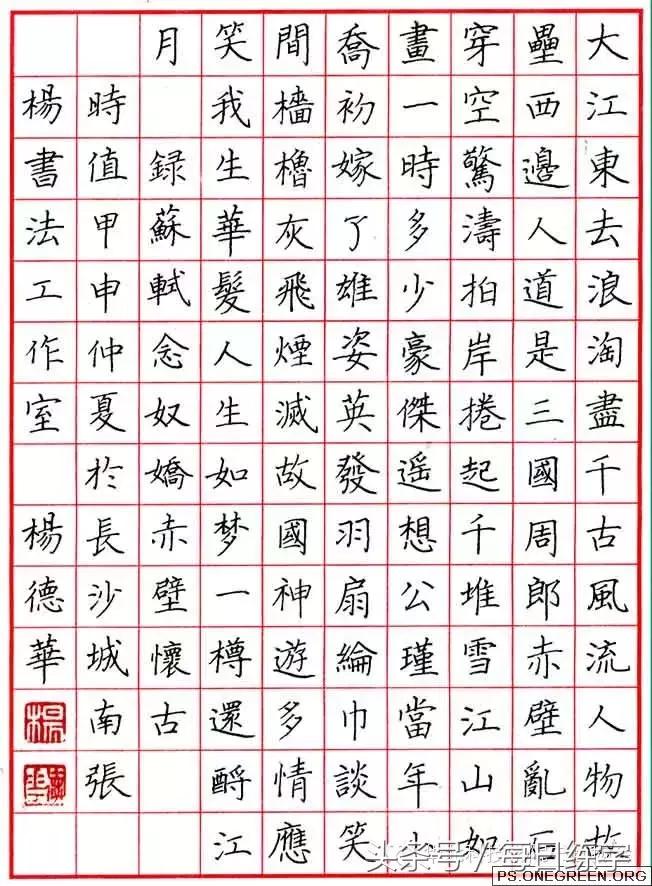 大江東去浪淘盡千古風流人物故
壘西邊人道是三國周郎赤壁亂石
穿空驚濤拍岸捲起千堆雪江山如
畫一時多少豪傑遥想公瑾當年小
喬初嫁了雄姿英發羽扇綸巾談笑
間檣櫓灰飛煙滅故國神遊多情應
笑我生華髮人生如梦一樽還酹江
月 録蘇軾念奴嬌赤壁懷古
時值甲申仲夏於長沙城南張
楊書法工作室 楊德華
头条号/每日练字
PS.ONEGREEN.ORG